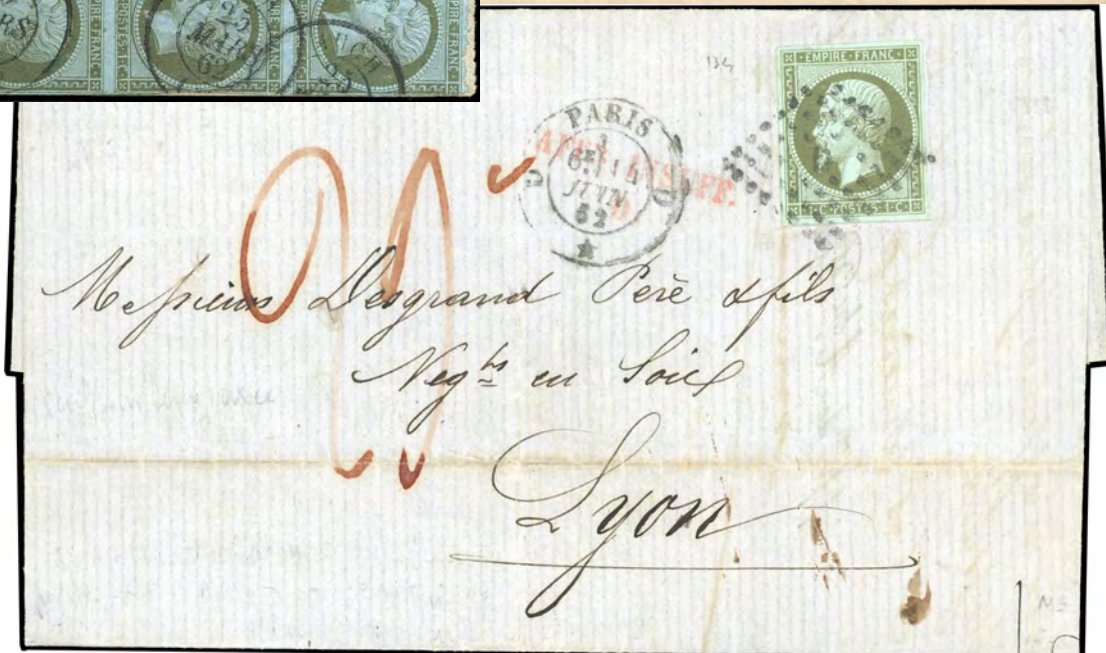 25
MARS
62
EMPIRE · FRANC ·
1·C· POSTES · 1·C·
134
PARIS
JUIN
62
AFFR. INSUFF.
Messieurs Desgrand Père & fils
Neg^ts en Soies
Lyon
MS